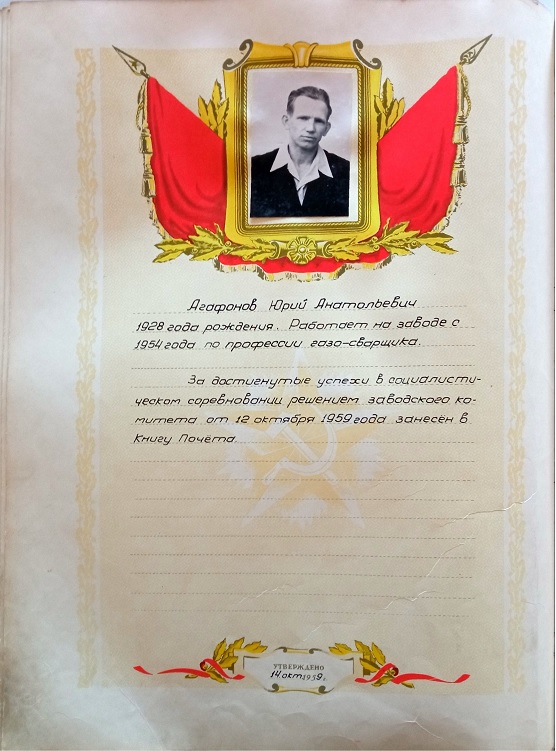 Агафонов Юрий Анатольевич
1928 года рождения. Работает на заводе с
1954 года по профессии газо-сварщика.
За достигнутые успехи в социалисти-
ческом соревновании решением заводского ко-
митета от 12 октября 1959 года занесён в
Книгу Почёта.
УТВЕРЖДЕНО
14 окт 1959 г.